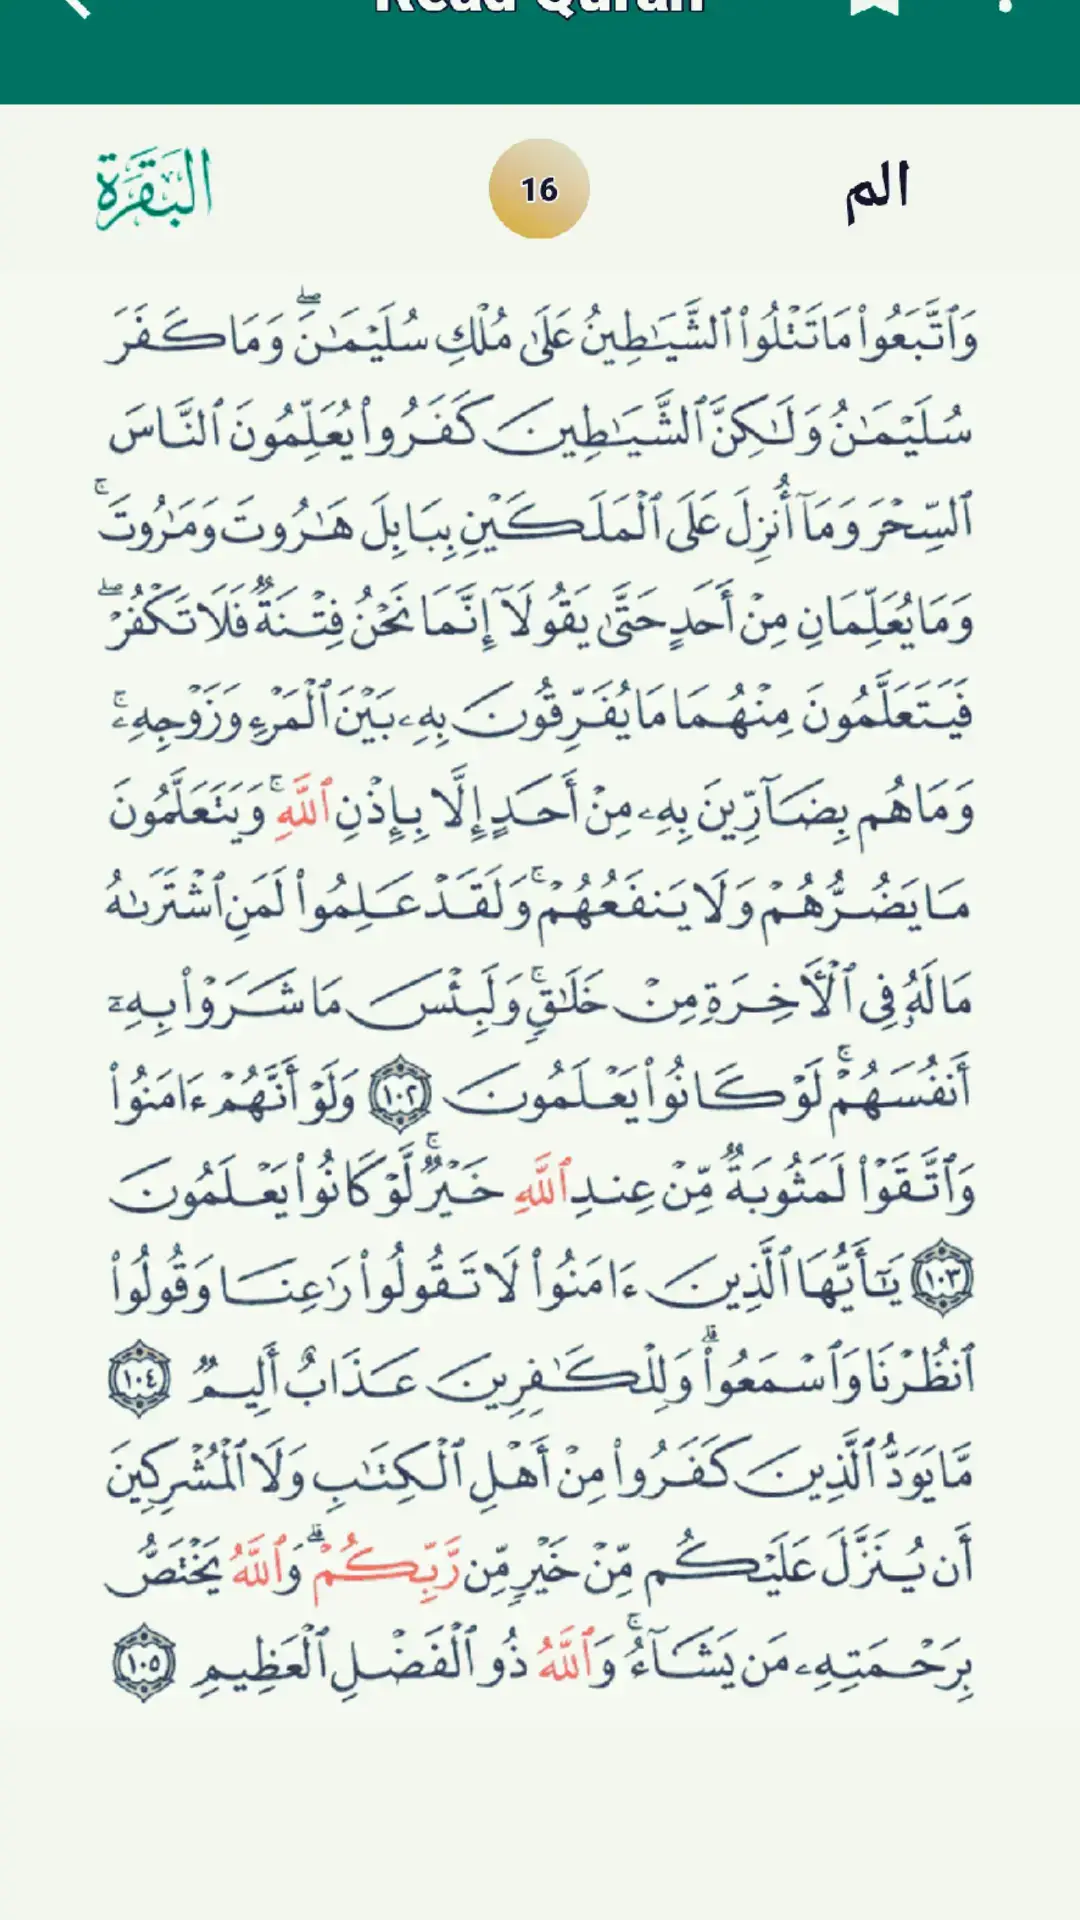 Read Quran
البَقَرَة
16
الم
وَٱتَّبَعُوا۟ مَا تَتْلُوا۟ ٱلشَّيَـٰطِينُ عَلَىٰ مُلْكِ سُلَيْمَـٰنَ ۖ وَمَا كَفَرَ
سُلَيْمَـٰنُ وَلَـٰكِنَّ ٱلشَّيَـٰطِينَ كَفَرُوا۟ يُعَلِّمُونَ ٱلنَّاسَ
ٱلسِّحْرَ وَمَآ أُنزِلَ عَلَى ٱلْمَلَكَيْنِ بِبَابِلَ هَـٰرُوتَ وَمَـٰرُوتَ ۚ
وَمَا يُعَلِّمَانِ مِنْ أَحَدٍ حَتَّىٰ يَقُولَآ إِنَّمَا نَحْنُ فِتْنَةٌ فَلَا تَكْفُرْ ۖ
فَيَتَعَلَّمُونَ مِنْهُمَا مَا يُفَرِّقُونَ بِهِۦ بَيْنَ ٱلْمَرْءِ وَزَوْجِهِۦ ۚ
وَمَا هُم بِضَآرِّينَ بِهِۦ مِنْ أَحَدٍ إِلَّا بِإِذْنِ ٱللَّهِ ۚ وَيَتَعَلَّمُونَ
مَا يَضُرُّهُمْ وَلَا يَنفَعُهُمْ ۚ وَلَقَدْ عَلِمُوا۟ لَمَنِ ٱشْتَرَىٰهُ
مَا لَهُۥ فِى ٱلْـَٔاخِرَةِ مِنْ خَلَـٰقٍ ۚ وَلَبِئْسَ مَا شَرَوْا۟ بِهِۦٓ
أَنفُسَهُمْ ۚ لَوْ كَانُوا۟ يَعْلَمُونَ ١٠٢ وَلَوْ أَنَّهُمْ ءَامَنُوا۟
وَٱتَّقَوْا۟ لَمَثُوبَةٌ مِّنْ عِندِ ٱللَّهِ خَيْرٌ ۚ لَّوْ كَانُوا۟ يَعْلَمُونَ
١٠٣ يَـٰٓأَيُّهَا ٱلَّذِينَ ءَامَنُوا۟ لَا تَقُولُوا۟ رَٰعِنَا وَقُولُوا۟
ٱنظُرْنَا وَٱسْمَعُوا۟ ۗ وَلِلْكَـٰفِرِينَ عَذَابٌ أَلِيمٌ ١٠٤
مَّا يَوَدُّ ٱلَّذِينَ كَفَرُوا۟ مِنْ أَهْلِ ٱلْكِتَـٰبِ وَلَا ٱلْمُشْرِكِينَ
أَن يُنَزَّلَ عَلَيْكُم مِّنْ خَيْرٍ مِّن رَّبِّكُمْ ۗ وَٱللَّهُ يَخْتَصُّ
بِرَحْمَتِهِۦ مَن يَشَآءُ ۚ وَٱللَّهُ ذُو ٱلْفَضْلِ ٱلْعَظِيمِ ١٠٥